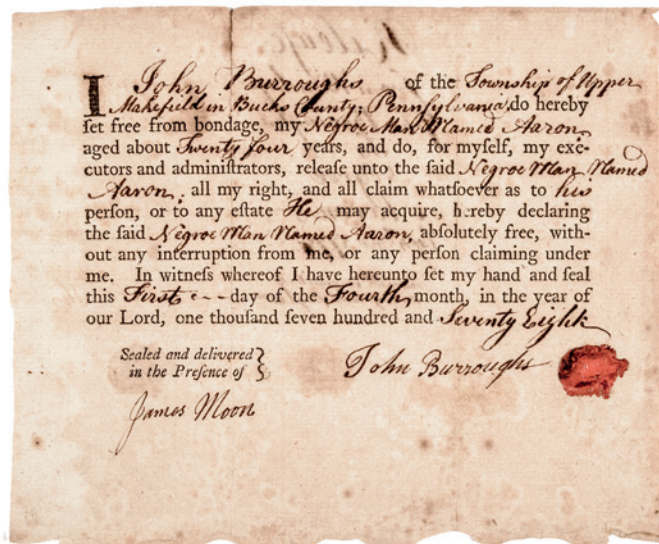 I John Burroughs of the Township of Upper
Makefield in Bucks County; Pennsylvania, do hereby
ſet free from bondage, my Negroe Man Named Aaron
aged about Twenty four years, and do, for myſelf, my exe-
cutors and adminiſtrators, releaſe unto the ſaid Negroe Man Named
Aaron, all my right, and all claim whatſoever as to his
perſon, or to any eſtate He may acquire, hereby declaring
the ſaid Negroe Man Named Aaron, abſolutely free, with-
out any interruption from me, or any perſon claiming under
me. In witneſs whereof I have hereunto ſet my hand and ſeal
this First day of the Fourth month, in the year of
our Lord, one thouſand ſeven hundred and Seventy Eight
Sealed and delivered
in the Presence of
John Burroughs
James Moon